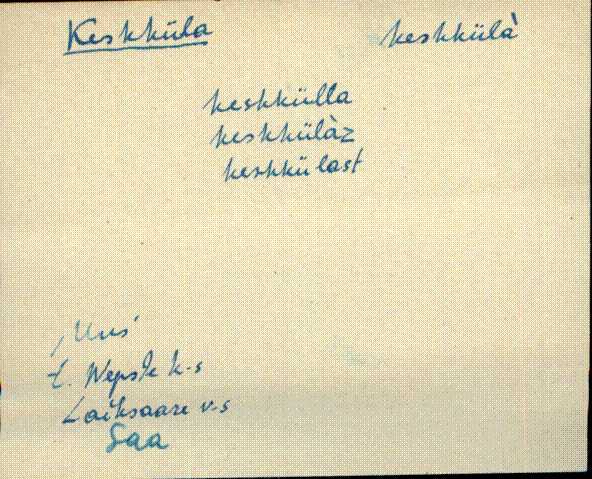 Keskküla keskkülà
keskkülla
keskkülàz
keskkülast
"Uus"
t. Wepste k-s
Laiksaare v-s
Saa